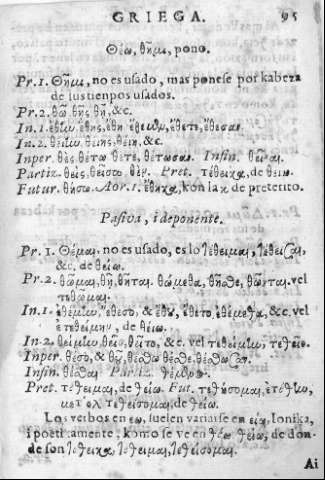 GRIEGA. 95
Θέω, θῆμι, pono.
Pr. 1. Θῆμι, no es usado, mas ponese por kabeza
de sus tienpos usados.
Pr. 2. θῶ, θῇς, θῇ, &c.
In. 1. ἔθην, ἔθης, ἔθη ἔθεμεν, ἔθετε, ἔθεσαν.
In. 2. θείην, θείης, θείη, &c.
Inper. θὲς, θέτω θέτε, θέτωσαν. Infin. θεῖναι.
Partiz. θεὶς, θεῖσα, θέν. Pret. τέθεικα, de θείω.
Futur. θήσω. Aor. 1. ἔθηκα, kon la κ de preterito.
Pasiva, i deponente.
Pr. 1. Θέμαι. no es usado, es lo τίθεμαι, τίθεσαι,
&c. de θείω.
Pr. 2. θῶμαι, θῇ, θῆται. θώμεθα, θῆσθε, θῶνται. vel
In. 1. ἐθέμην, ἔθεσο, & ἔθου, ἔθετο, ἐθέμεθα, &c. vel
de θείω.
In. 2. θείμην, θεῖο, θεῖτο, &c. vel
Inper. θέσο, & θοῦ, θέσθω θέσθε, θέσθωσαν.
Infin. θέσθαι Partiz. θέμενος.
Pret. τέθειμαι, de θείω. Fut. τεθήσομαι, ἐτέθην,
de θείω.
Los verbos en εω, suelen variarse en ειω, Ionika,
i poetikamente, komo se ve en θέω θείω, de don-
de son τέθεικα, τέθειμαι, τεθείσομαι.
Ai